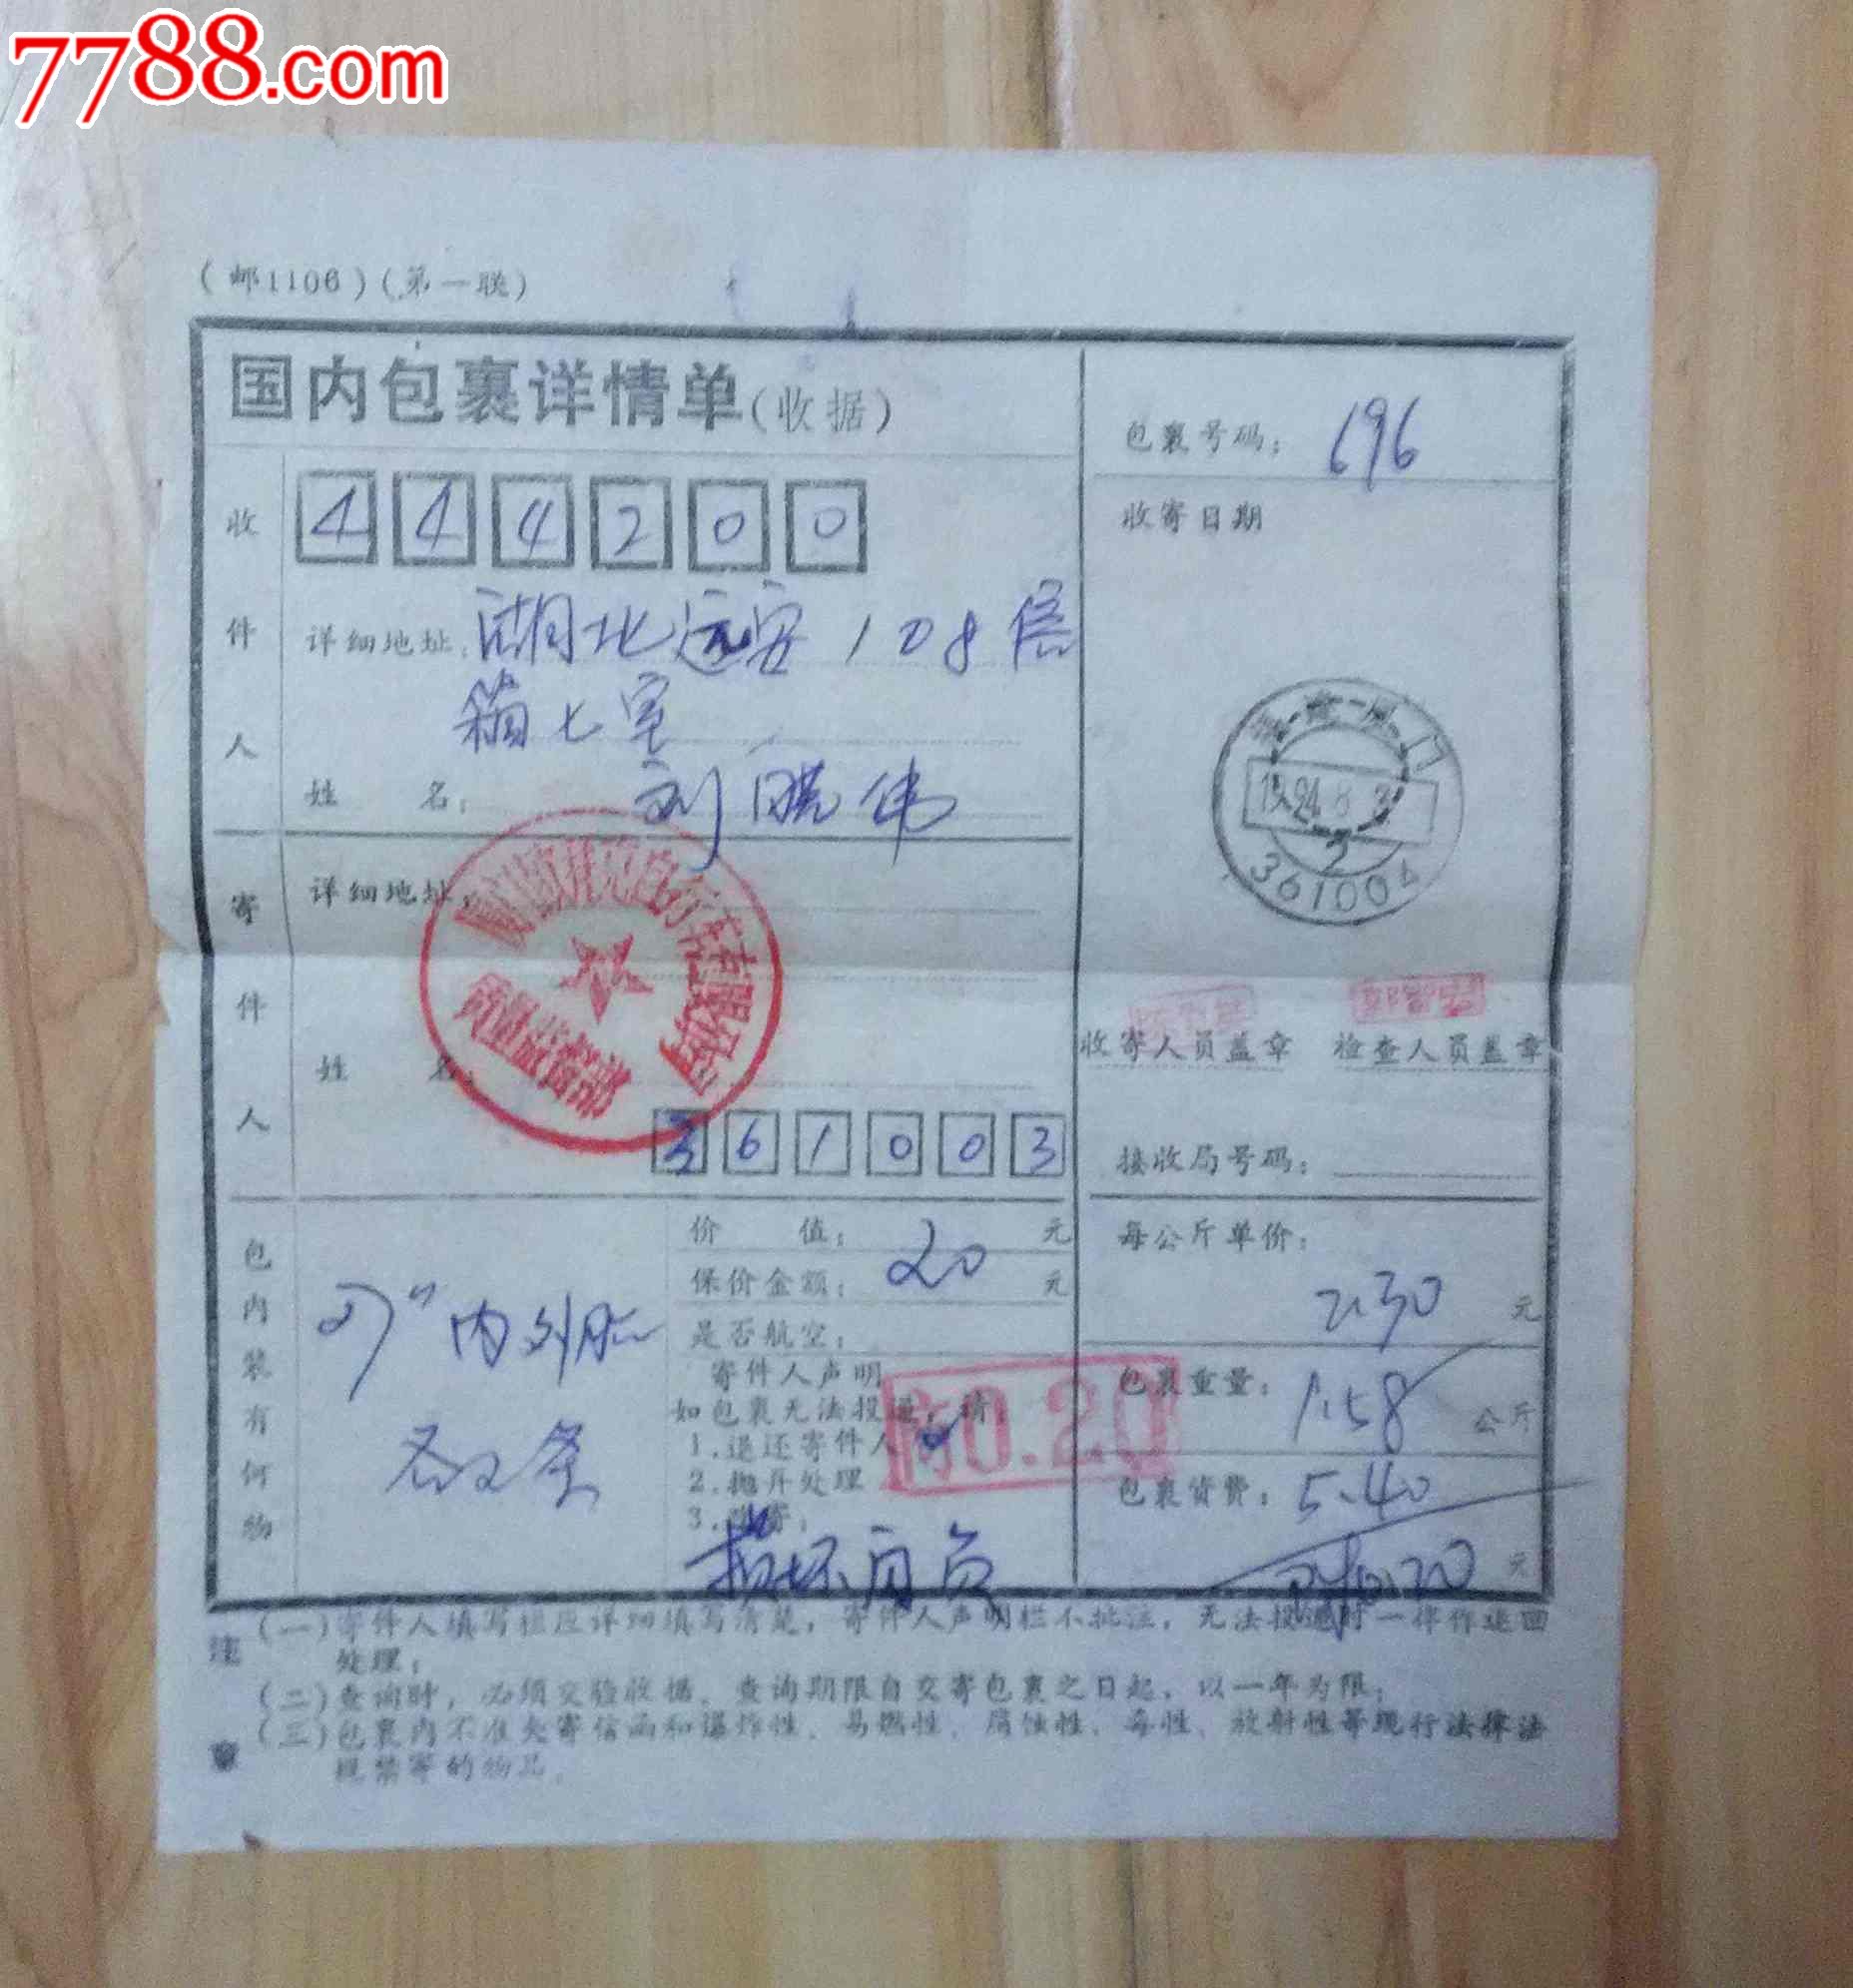 7788.com
(邮1106)(第一联)
国内包裹详情单(收据)
包裹号码: 696
收件人
444200
收寄日期
详细地址: 湖北远安108信
箱七室
姓 名: 刘晓伟
厦门
361004
2
寄件人
详细地址:
质量监督部
姓 名:
361003
收寄人员盖章 检查人员盖章
接收局号码:
包内装有何物
27"内外胎
各2条
价 值: 20 元
保价金额: 元
是否航空:
寄件人声明
如包裹无法投递,请:
1.退还寄件人
2.抛弃处理
3.改寄:
损坏自负
附0.20
每公斤单价:
2.30 元
包裹重量: 1.58 公斤
包裹资费: 5.40
附0.20 元
注意
(一)寄件人填写栏应详细填写清楚,寄件人声明栏不批注,无法投递时一律作退回
处理;
(二)查询时,必须交验收据。查询期限自交寄包裹之日起,以一年为限;
(三)包裹内不准夹寄信函和爆炸性、易燃性、腐蚀性、毒性、放射性等现行法律法
规禁寄的物品。